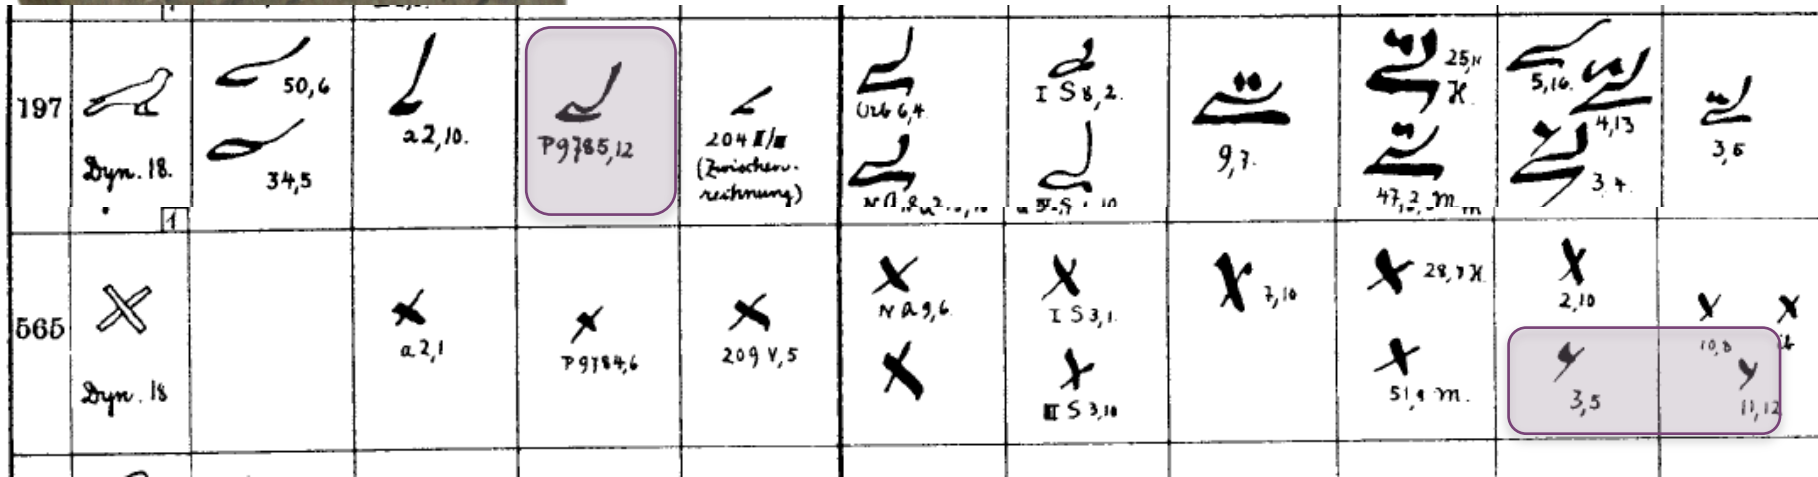 197
Dyn. 18.
50,6
34,5
a 2,10.
P 9785,12
204 II/III
(Zwischen-
rechnung)
I S 8,2.
9,7.
25,11
H.
47,2 m
5,16.
4,13
3,4.
3,6
1
565
Dyn. 18
a 2,1
P 9784,6
209 V,5
N A 9,6.
I S 3,1.
III S 3,10
7,10
28,7 H.
51,9 m.
2,10
3,5
10,8
11,12